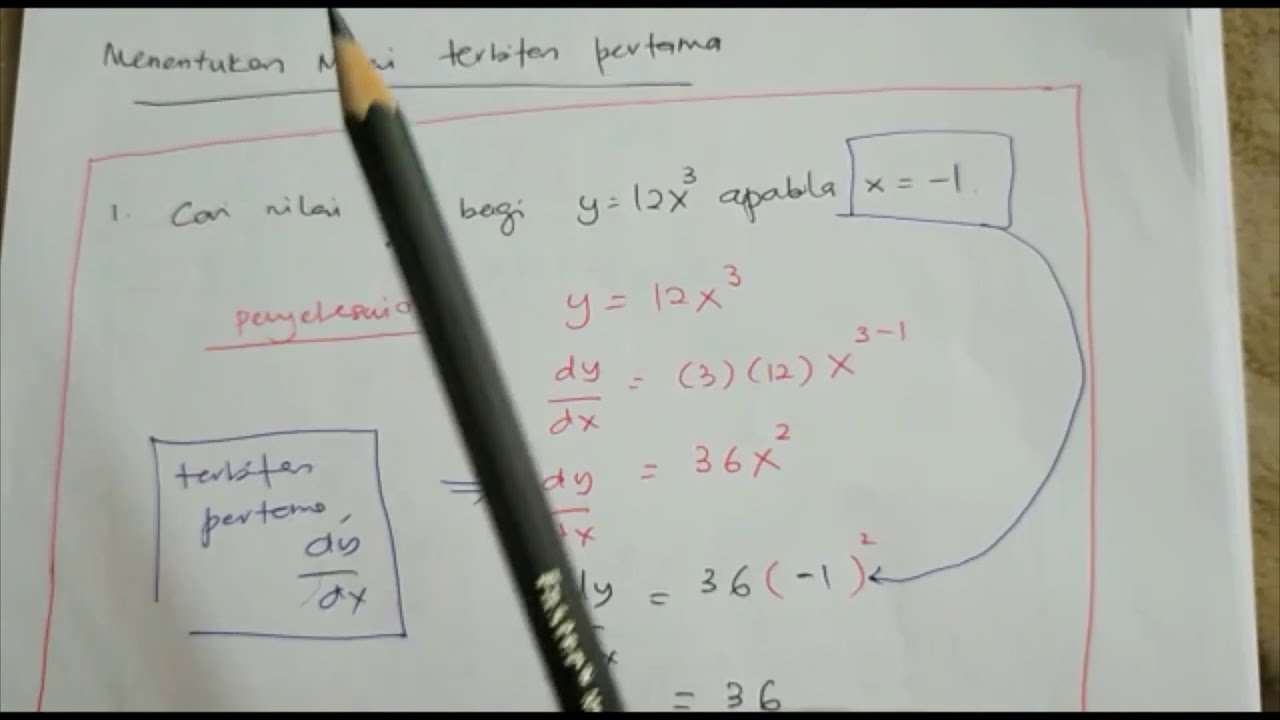 Menentukan terbitan pertama
1. Cari nilai bagi y = 12x³ apabila x = -1.
penyelesaia
y = 12x³
dy/dx = (3)(12)x³⁻¹
terbitan
pertama,
dy/dx
⇒ dy/dx = 36x²
dy/dx = 36(-1)²
= 36